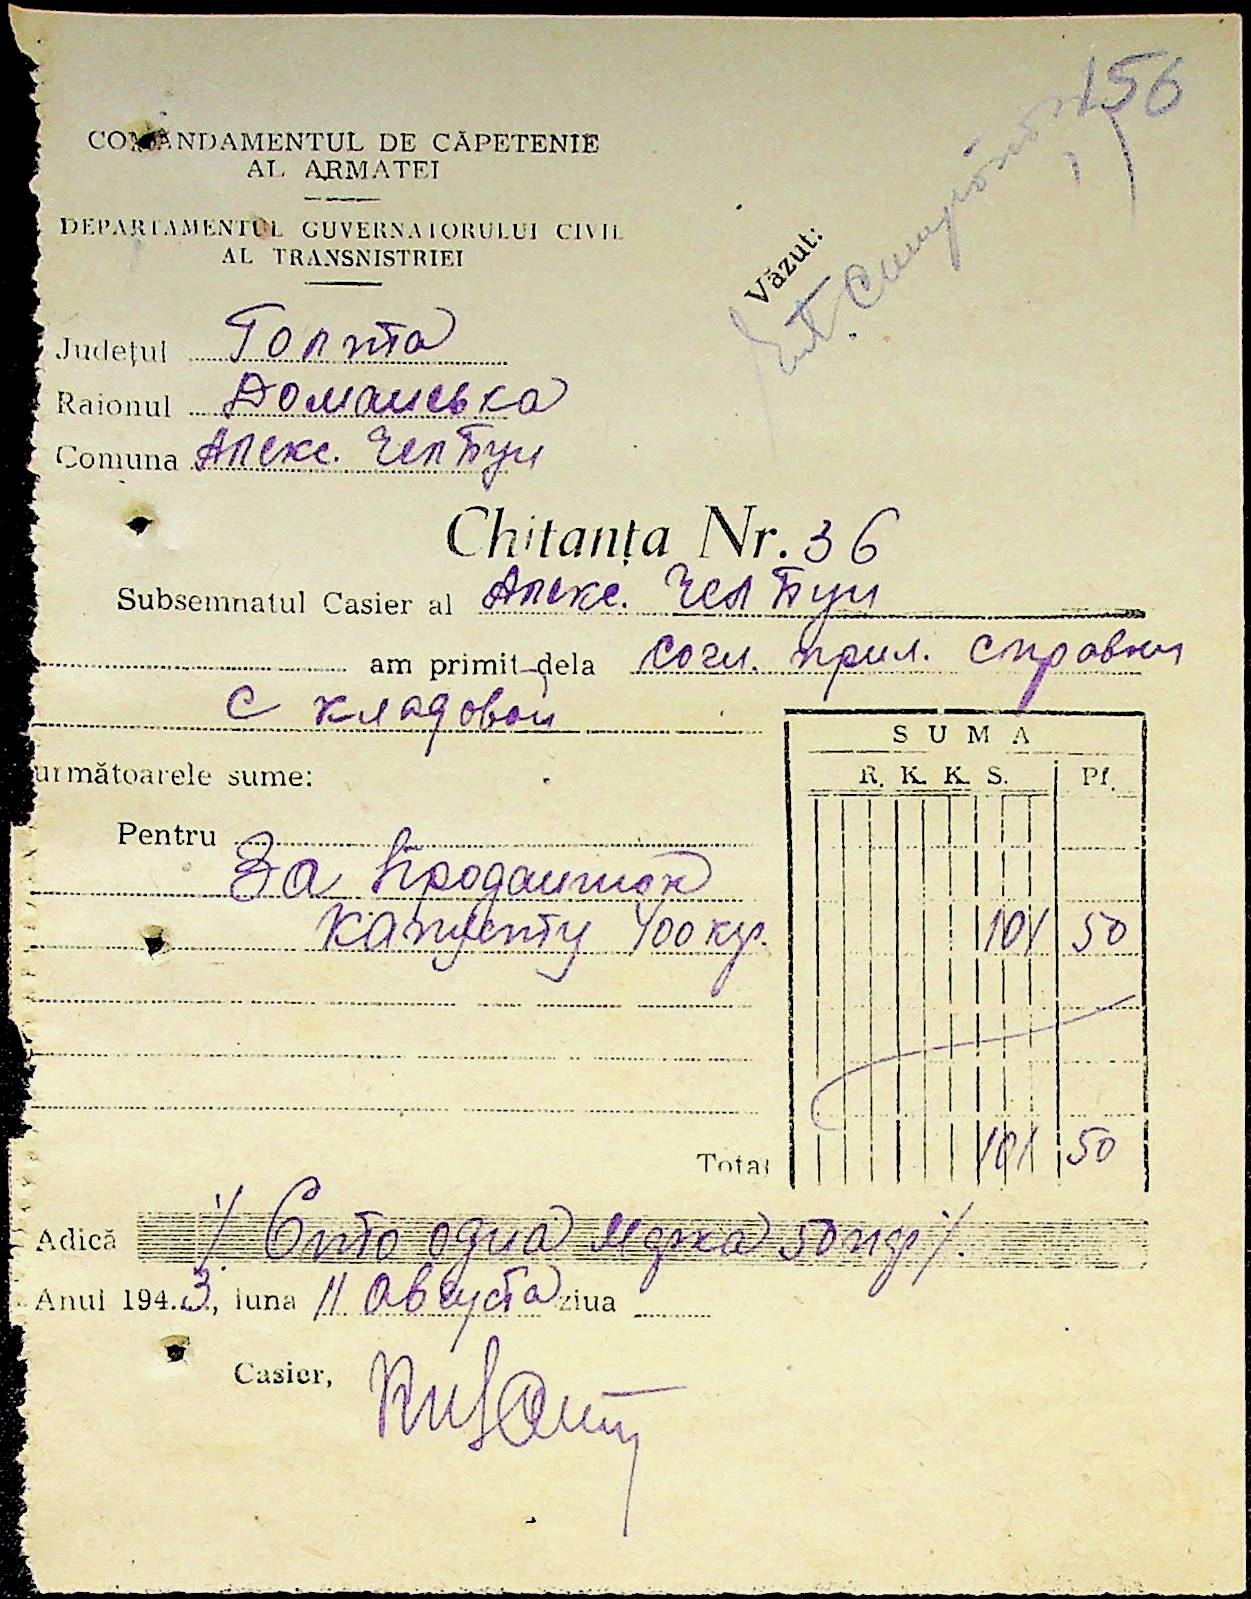 156
COMANDAMENTUL DE CĂPETENIE
AL ARMATEI
DEPARTAMENTUL GUVERNATORULUI CIVIL
AL TRANSNISTRIEI
Văzut:
Județul Голта
Raionul Доманевка
Comuna Алекс. Челбуи
Chitanța Nr. 36
Subsemnatul Casier al Алекс. Челбуи
am primit dela согл. прил. справки
с кладовой
S U M A
următoarele sume:
R. K. K. S. Pf.
Pentru
За проданной
капусту 400 кгр. 101 50
Total 101 50
Adică Сто одна марка 50 пф
Anul 1943, luna 11 Августа ziua
Casier,